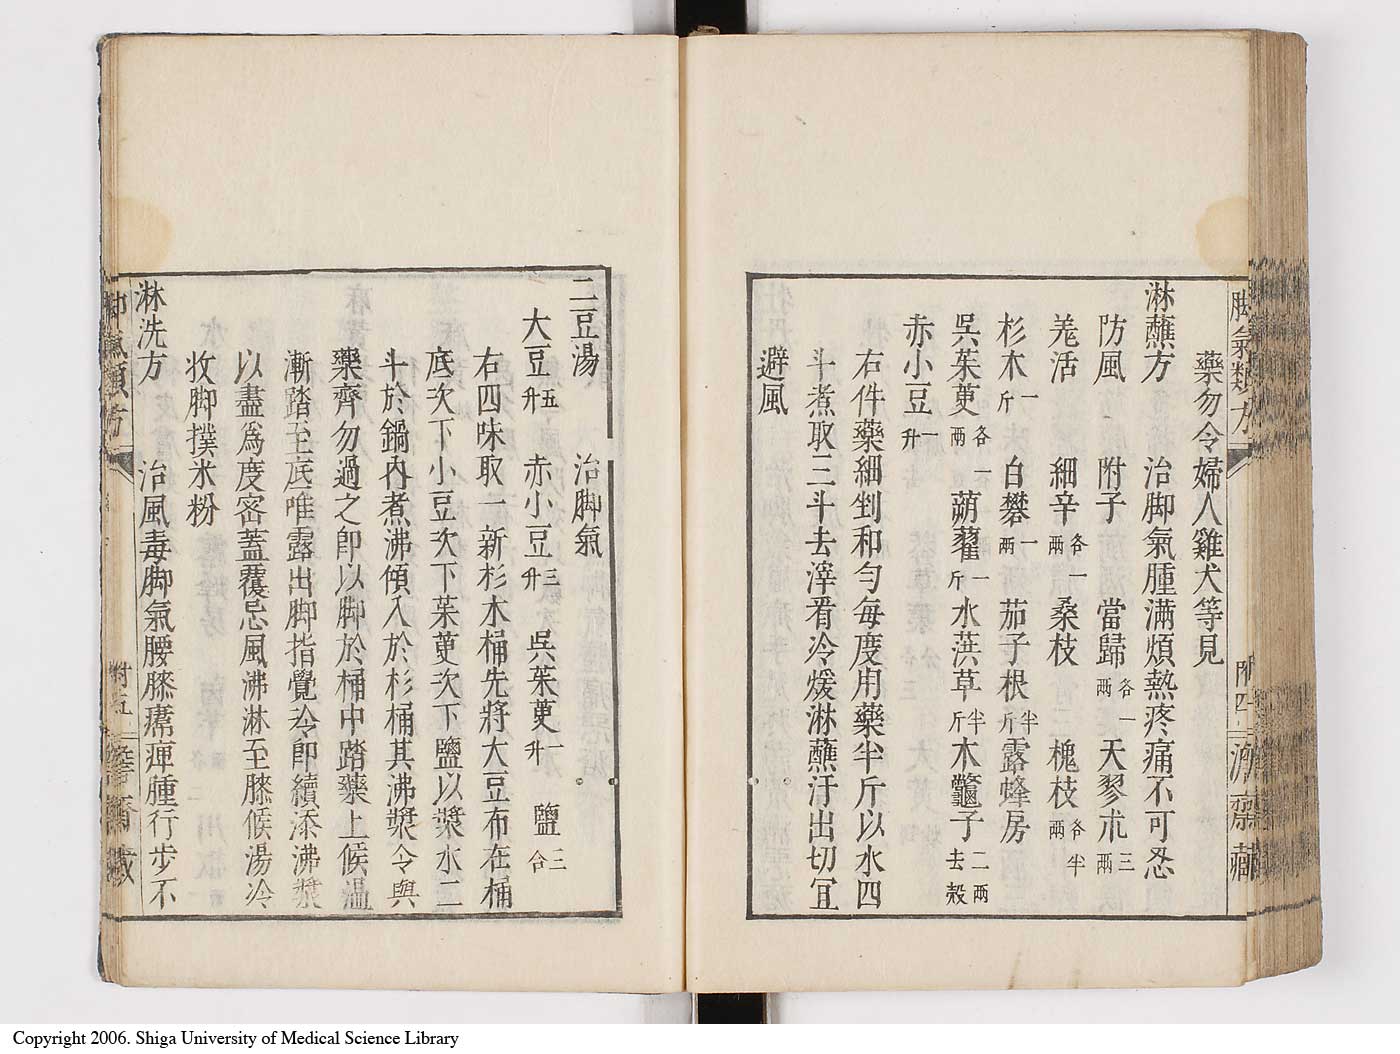 藥勿令婦人雞犬等見
淋蘸方　治脚氣腫滿煩熱疼痛不可忍
防風　附子　當歸各一兩　天蓼朮三兩
羌活　細辛各一兩　桑枝　槐枝各半兩
杉木一斤　白礬一兩　茄子根半斤　露蜂房
吳茱萸各一兩　蒴藋一斤　水葓草半斤　木鼈子二兩去殼
赤小豆一升
右件藥細剉和勻每度用藥半斤以水四
斗煮取三斗去滓看冷煖淋蘸汗出切冝
避風
脚氣類方
附四
濟齋藏
二豆湯　治脚氣
大豆五升　赤小豆三升　吳茱萸一升　鹽三合
右四味取一新杉木桶先將大豆布在桶
底次下小豆次下茱萸次下鹽以漿水二
斗於鍋內煮沸傾入於杉桶其沸漿令與
藥齊勿過之即以脚於桶中踏藥上候溫
漸踏至底唯露出脚指覺冷即續添沸漿
以盡爲度密蓋覆忌風沸淋至膝候湯冷
收脚撲米粉
淋洗方　治風毒脚氣腰膝𤸷痺腫行步不
脚氣類方
附五
齋藏
Copyright 2006. Shiga University of Medical Science Library